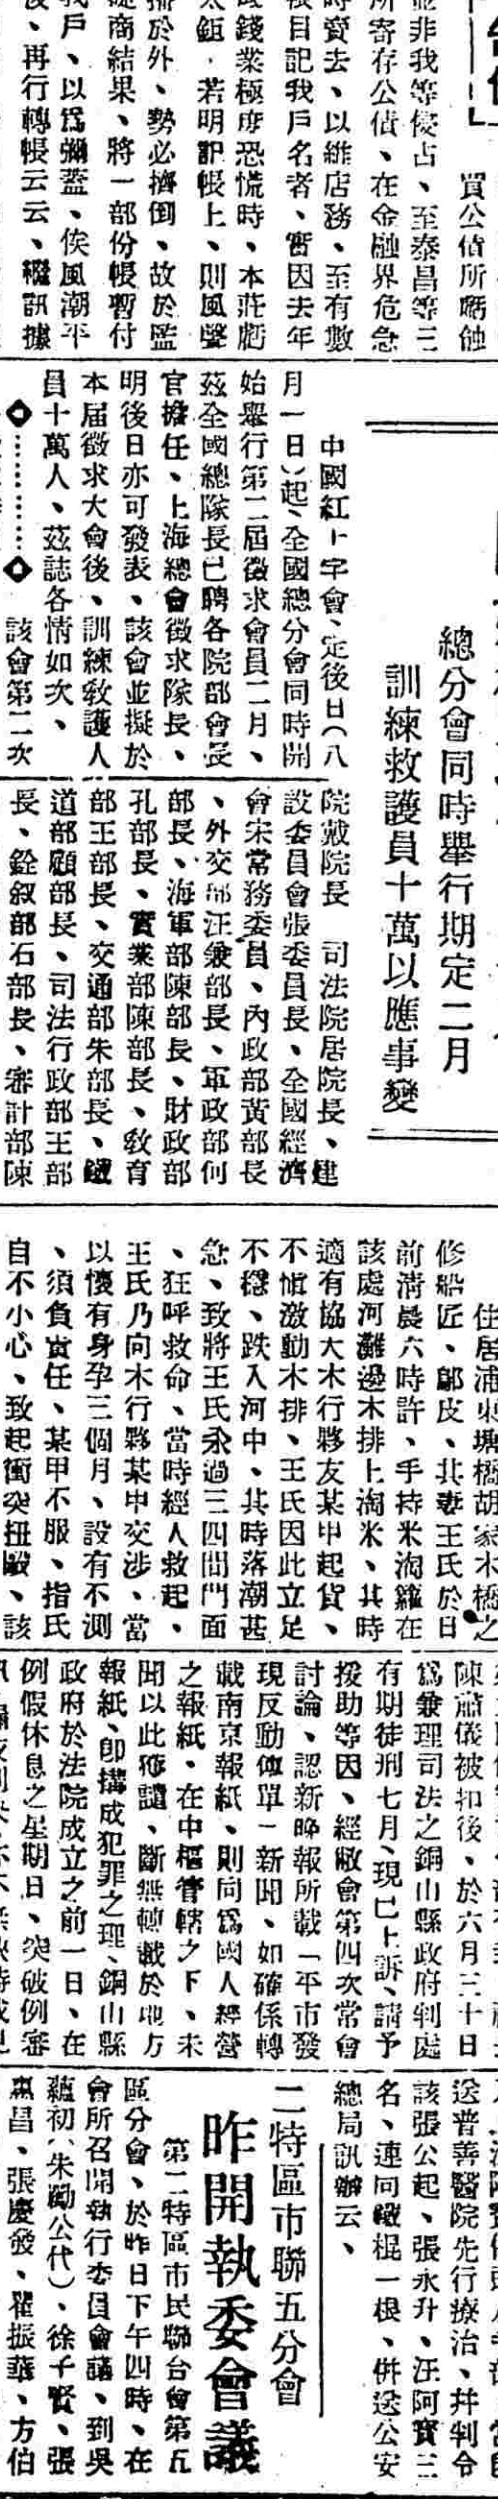 買公債所虧蝕
並非我等侵占、至泰昌等三
所寄存公債、在金融界危急
時賣去、以維店務、至有數
帳目記我戶名者、實因去年
錢業極度恐慌時、本莊虧
太鉅、若明記帳上、則風聲
播於外、勢必擠倒、故於監
商結果、將一部份帳暫付
我戶、以爲彌蓋、俟風潮平
後、再行轉帳云云、訊據
總分會同時舉行期定二月
訓練救護員十萬以應事變
中國紅十字會、定後日(八
月一日)起、全國總分會同時開
始舉行第二屆徵求會員二月、
茲全國總隊長已聘各院部會長
官擔任、上海總會徵求隊長、
明後日亦可發表、該會並擬於
本屆徵求大會後、訓練救護人
員十萬人、茲誌各情如次、
◆………◆該會第二次
院戴院長 司法院居院長、建
設委員會張委員長、全國經濟
會宋常務委員、內政部黃部長
、外交部汪兼部長、軍政部何
部長、海軍部陳部長、財政部
孔部長、實業部陳部長、敎育
部王部長、交通部朱部長、鐵
道部顧部長、司法行政部王部
長、銓敘部石部長、審計部陳
住居浦東塘橋胡家木橋之
修船匠、鄔皮、其妻王氏於日
前淸晨六時許、手持米淘籮在
該處河灘邊木排上淘米、其時
適有協大木行夥友某甲起貨、
不愼激動木排、王氏因此立足
不穩、跌入河中、其時落潮甚
急、致將王氏汆過三四間門面
、狂呼救命、當時經人救起、
王氏乃向木行夥某甲交涉、當
以懷有身孕三個月、設有不測
、須負責任、某甲不服、指氏
自不小心、致起衝突扭毆、該
陳蕭儀被扣後、於六月三十日
爲兼理司法之銅山縣政府判處
有期徒刑七月、現已上訴、請予
援助等因、經敝會第四次常會
討論、認新晚報所載「平市發
現反動傳單」新聞、如確係轉
載南京報紙、則同爲國人經營
之報紙、在中樞管轄之下、未
聞以此獲譴、斷無轉載於地方
報紙、卽構成犯罪之理、銅山縣
政府於法院成立之前一日、在
例假休息之星期日、突破例審
送普善醫院先行療治、幷判令
該張公起、張永升、汪阿寶三
名、連同鐵棍一根、併送公安
總局訊辦云、
二特區市聯五分會
昨開執委會議
第二特區市民聯合會第五
區分會、於昨日下午四時、在
會所召開執行委員會議、到吳
蘊初(朱勵公代)、徐千賢、張
惠昌、張慶發、瞿振華、方伯